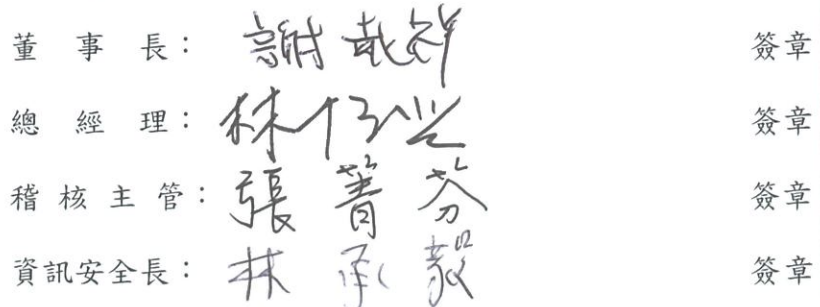 董事長：謝戟祥 簽章
總經理：林仔 簽章
稽核主管：張菁芬 簽章
資訊安全長：林承毅 簽章